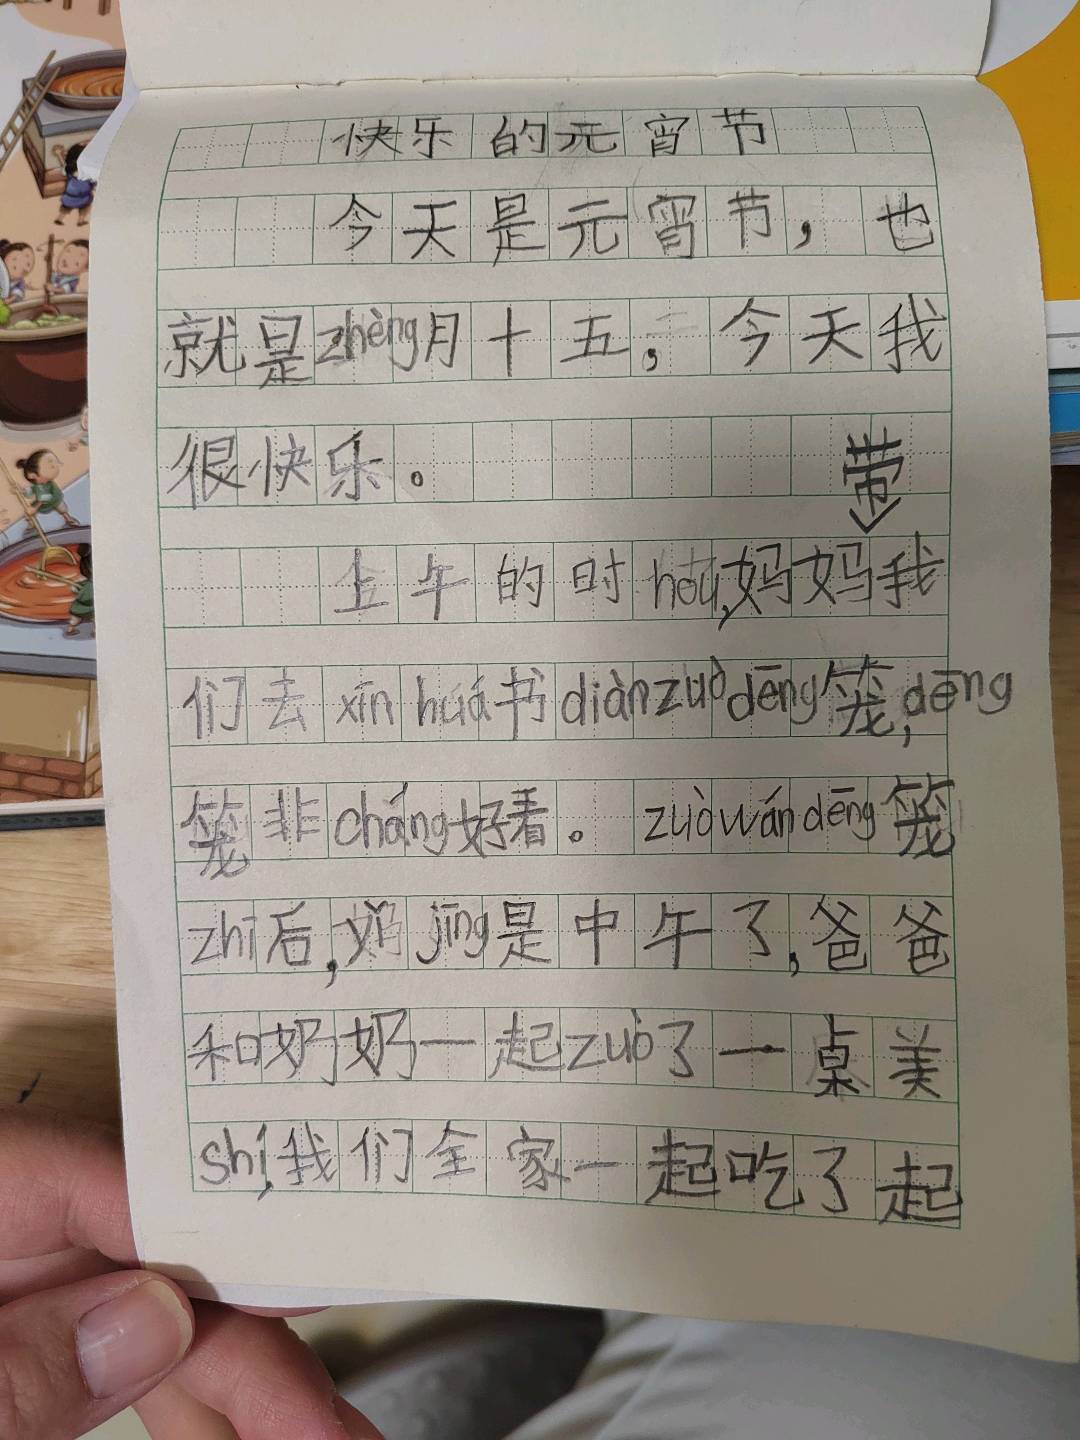 快乐的元宵节
今天是元宵节，也
就是zhèng月十五，今天我
很快乐。
带
上午的时hou，妈妈我
们去xīn huá书diàn zuò dēng笼，dēng
笼非cháng好看。zuò wán dēng笼
zhī后，yǐ jīng是中午了，爸爸
和奶奶一起zuò了一桌美
shí，我们全家一起吃了起